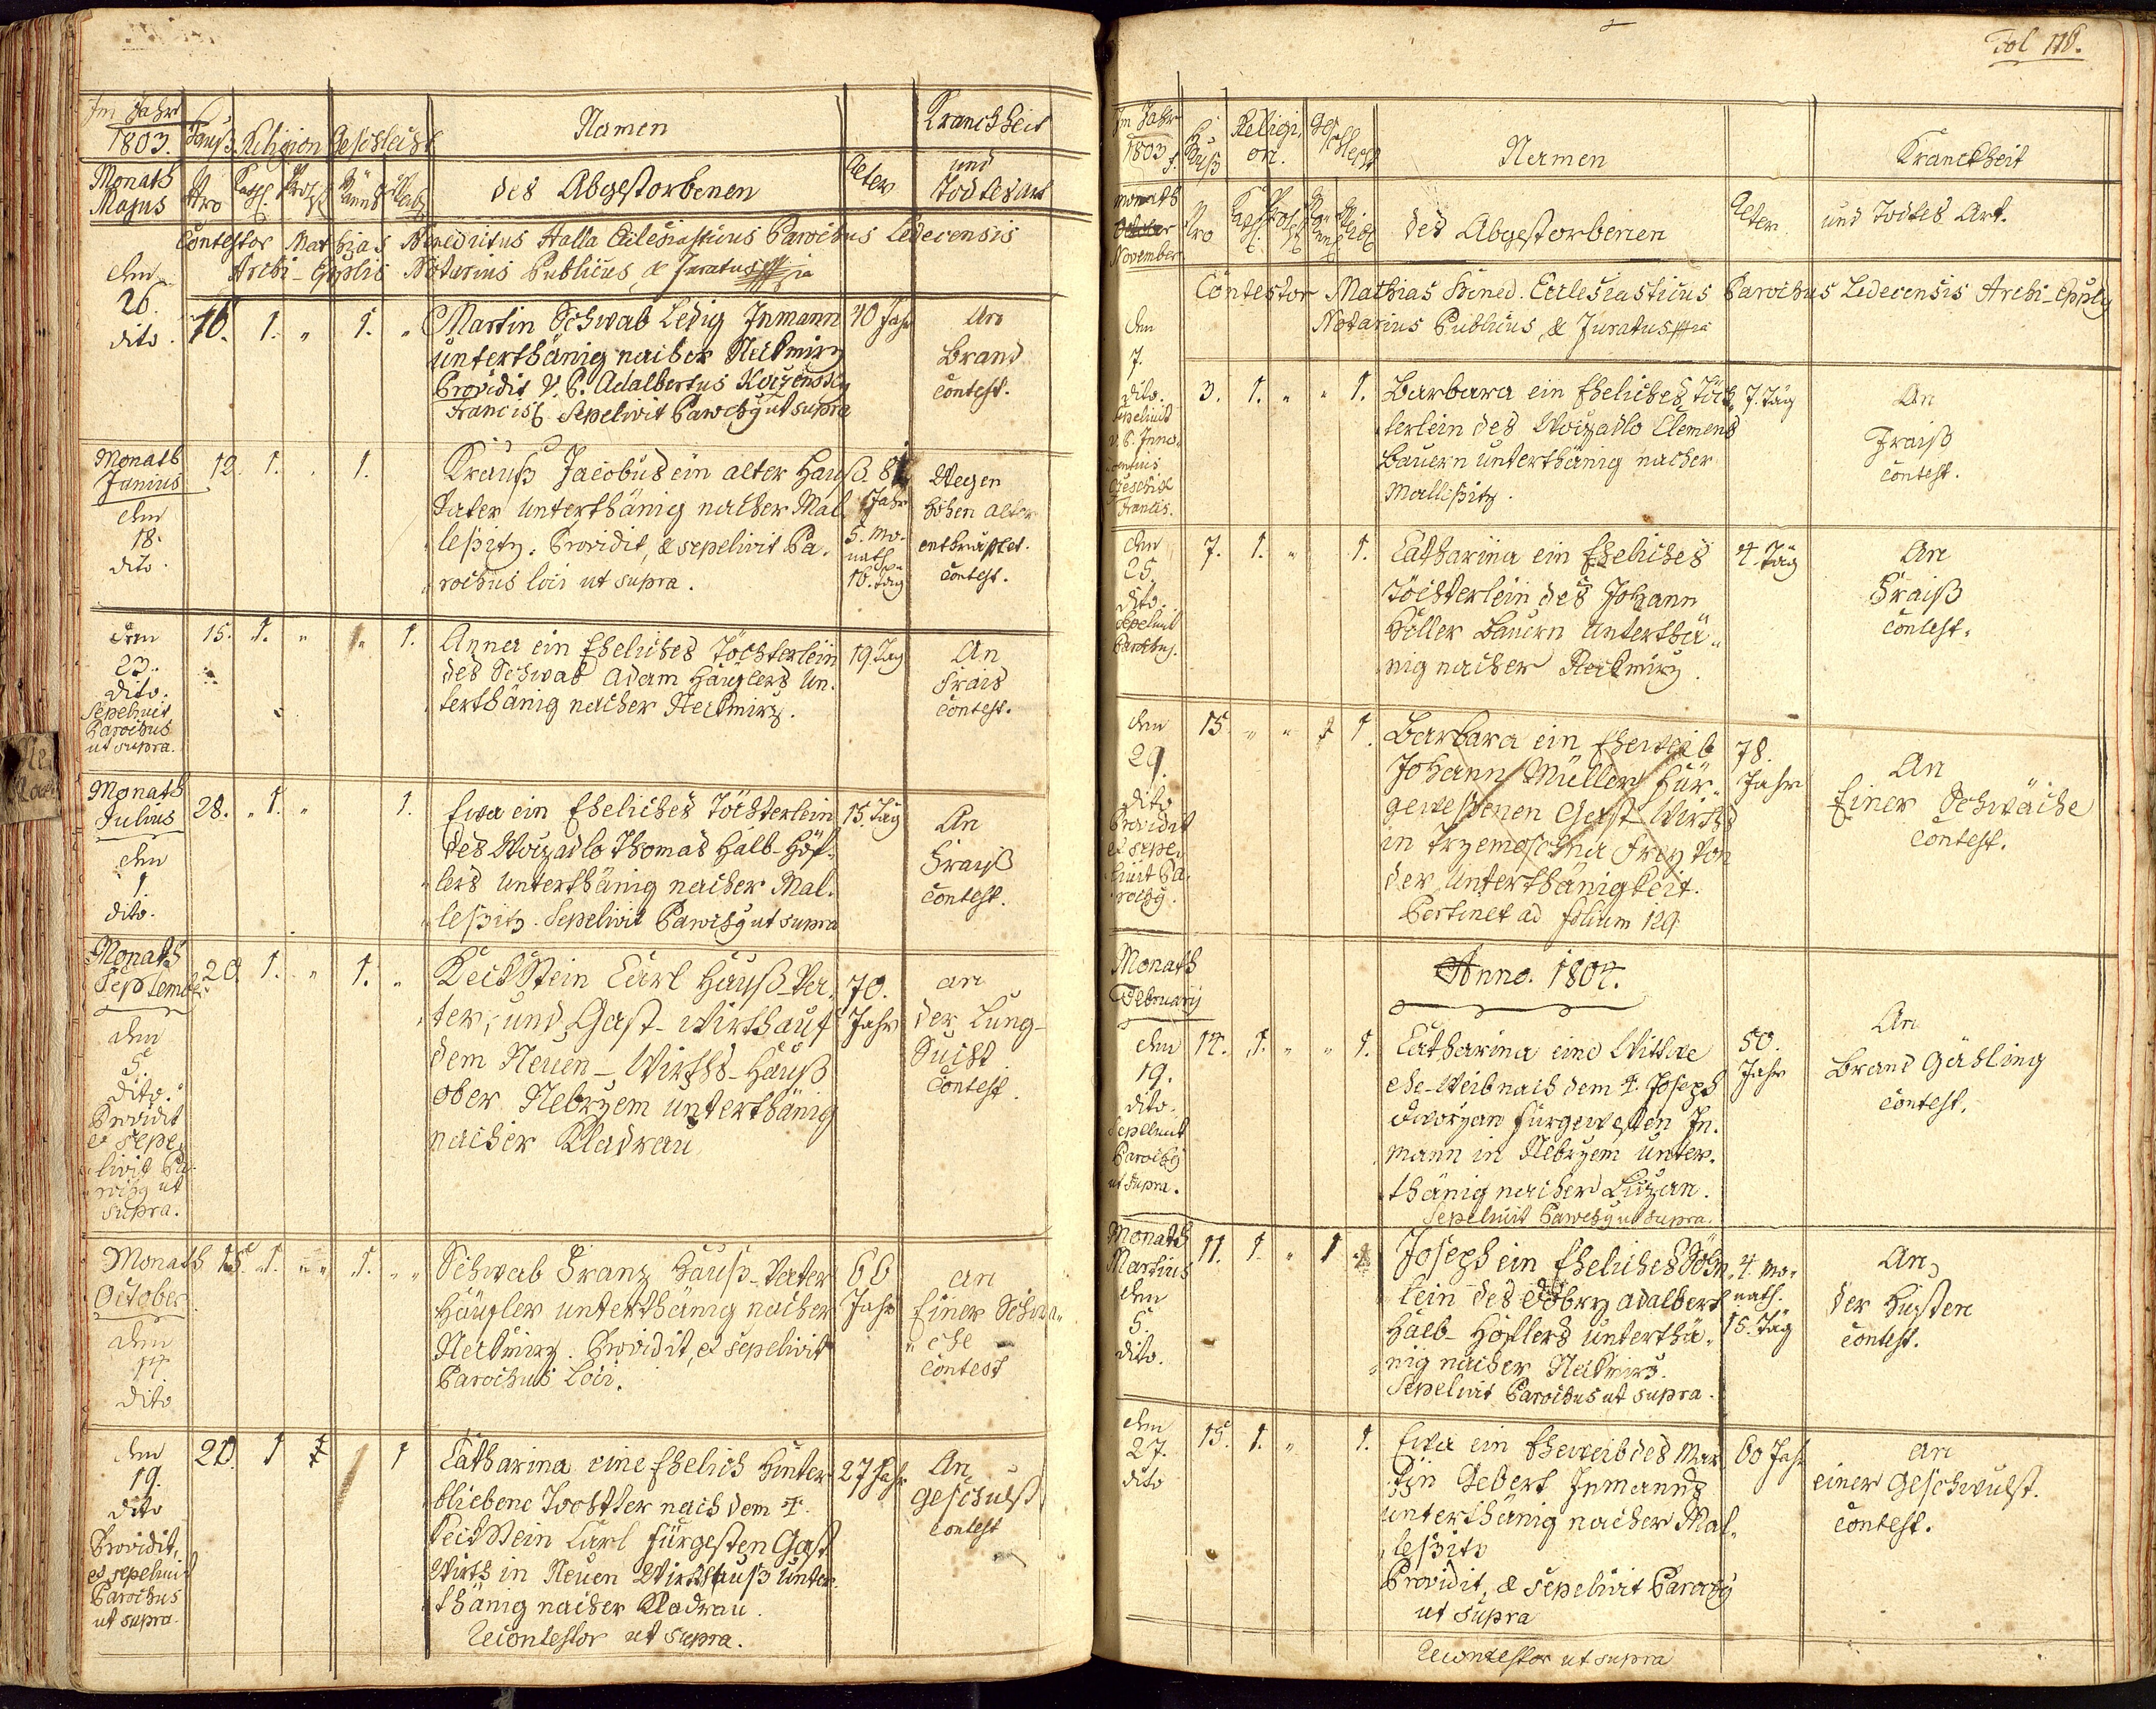 Im Jahr
1803.
Hauß
Religion
Geschlecht
Namen
Kranckheit
Monath
Majus
Nro
Cath.
Prot.
des Abgestorbenen
Alter
und
Todtesart
Contestor Mathias Benedictus Halla Ecclesiasticus Parochus Ledecensis
Archi-Eppalis Notarius Publicus, & Juratus
den
26.
dito.
16. 1. " 1. "
Martin Schwab Ledig Inmann
unterthänig nacher Nekmirz
Providit V. P. Adalbertus
Francisc. Sepelivit Parochy ut supra
40 Jahr
An
Brand
Contest.
Monath
Junius
den
18.
dito.
12. 1. " 1.
Krauß Jacobus ein alter Hauß
Vater unterthänig nacher Mal
leßitz. Providit, & sepelivit Pa.
rochus loci ut supra.
81
Jahr
5. Mo.
nath
16. tag
Wegen
hohen alter
entkräfftet.
Contest.
den
23.
dito.
Sepelivit
Parochus
ut supra.
15. 1. " " 1.
Anna ein Eheliches Töchterlein
des Schwab Adam Häuslers Un.
terthänig nacher Nekmirz.
19. Tag
An
Frais
Contest.
Monath
Julius
den
1.
dito.
28. " 1. " 1.
Eva ein Eheliches Töchterlein
des Woyzadlo Thomas Halb-Höf-
lers Unterthänig nacher Mal.
leßitz. Sepelivit Parochy ut supra
15. Tag
An
Fraiß
Contest.
Monath
September
den
5.
dito.
Providit
et sepe,
livit Pa.
rochy ut
supra.
20. 1. " 1. "
Keckstein Carl Hauß-Va.
ter, und Gast-wirth auf
dem Neuen-Wirths-Hauß
ober Nebrzem unterthänig
nacher Kladrau
70.
Jahr
an
der Lung-
Sucht
Contest.
Monath
October
den
14
dito
15. 1. " " 1. " "
Schwab Franz Hauß-Vater
Häusler unterthänig nacher
Nekmirz. Providit, et sepelivit
Parochus Loci.
66
Jahr
an
Einer Schwä,,
,,che
Contest
den
19.
dito
Providit,
et sepelivit
Parochus
ut supra.
20. 1 1
Catharina eine Ehelich hinter
bliebene Tochtter nach dem †.
Keckstein Carl fürgesten Gast
Wirth in Neuen Wirtshauß Unter
thänig nacher Kladrau.
Recontestor ut supra.
27 Jahr
An
Geschulst
Contest
Fol 116.
Im Jahr
1803
Hauß
Religi,
on.
Ge
schlecht
Namen
Kranckheit
Monath
November
Nro
des Abgestorbenen
Alter
und Todtes Art.
Contestor Mathias Bened. Ecclesiasticus Parochus Ledecensis Archi-Eppaly
Notarius Publicus, & Juratus
den
7.
dito.
Sepelivit
V. P. Inno,
centius
Francis.
3. 1. " " 1.
Barbara ein Eheliches Töch
terlein des Woyzadlo Clemens
Bauern unterthänig nacher
Malleßitz.
7. Täg
An
Fraiß
Contest.
den
25.
dito.
Sepelivit
Parochus.
7. 1. " 1.
Catharina ein Eheliches
Töchterlein des Johann
Höller Bauern Unterthä,,
nig nacher Nekmirz.
4. Täg
An
Fraiß
Contest.
den
29.
dito
Providit
et sepe,
livit Pa.
rochy.
15 " " 1.
Barbara ein Eheweib
Johann Müller Für,,
geweßenen Gast Wirths
in Trzemoschna Frey von
der Unterthänigkeit.
Pertinet ad folium 129
78.
Jahr
An
Einer Schwäche
Contest.
Monath
February
Anno. 1804.
den
19.
dito.
Sepelivit
Parochy
ut supra.
14. 1. " " 1.
Catharina eine Wittwe
ehe-Weib nach dem †. Joseph
Dworzan fürgewesten In.
mann in Nebrzem Unter.
thänig nacher Luzan.
Sepelivit Parochy ut supra.
50.
Jahr
An
Brand Gähling
Contest.
Monath
Martius
den
5.
dito.
11. 1. " 1
Joseph ein Eheliches Söhn,
lein des Dobry Adalbert
Halb-Höflers unterthä,
nig nacher Nekmirz.
Sepelivit Parochus ut supra.
4. Mo,
nath.
15. Tag
An
der Husten
Contest.
den
27.
dito
15. 1. " 1.
Eva ein Eheweib des Mar
tin Gebert Inmanns
unterthänig nacher Mal,
leßitz
Providit, & sepelivit Parochy
ut supra
60 Jahr
an
einer Geschwulst.
Contest.
Recontestor ut supra